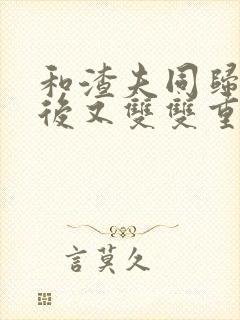 和渣夫同歸
後又雙雙重
言莫久